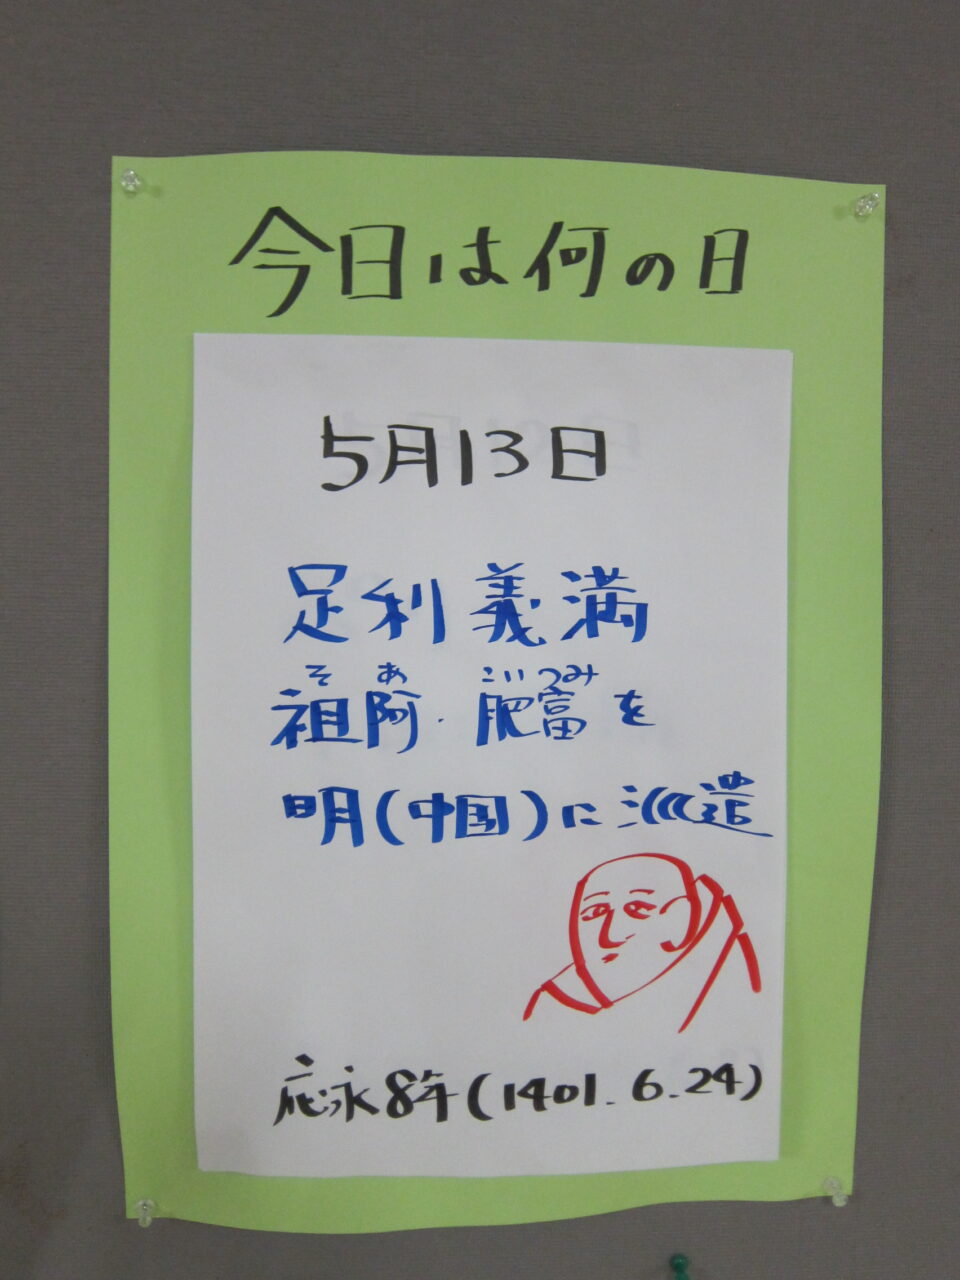 今日は何の日
5月13日
足利義満
そ あ こいつみ
祖阿・肥富を
明(中国)に派遣
応永8年(1401.6.24)